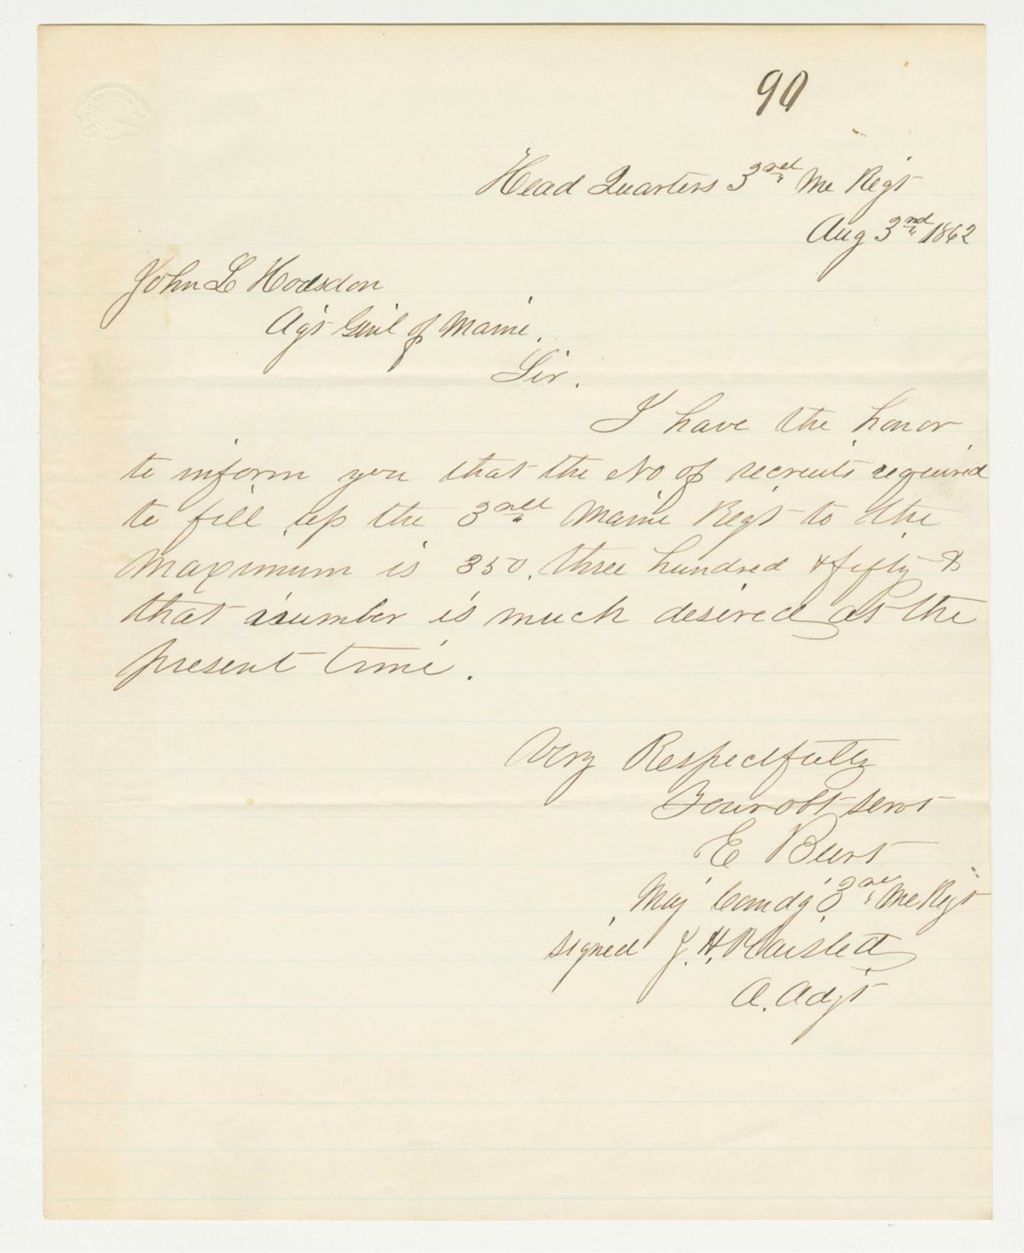 90
Head Quarters 3rd Me Regt
Aug 3rd 1862
John L Hodsdon
Agt Genl of Maine.
Sir.
I have the honor
to inform you that the No of recruits required
to fill up the 3rd Maine Regt to the
Maximum is 350. three hundred & fifty &
that number is much desired at the
present time.
Very Respectfully
Your obt servt
E Burt
Maj Comdg 3rd Me Regt
signed J. H. Plaisted
A. Adjt